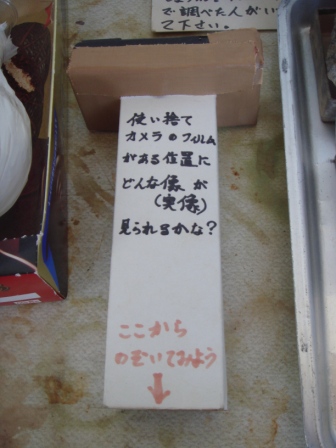 で調べた人がい
て下さい。
使い捨て
カメラのフィルム
がある位置に
どんな像が
(実像)
見られるかな?
ここから
のぞいてみよう
↓